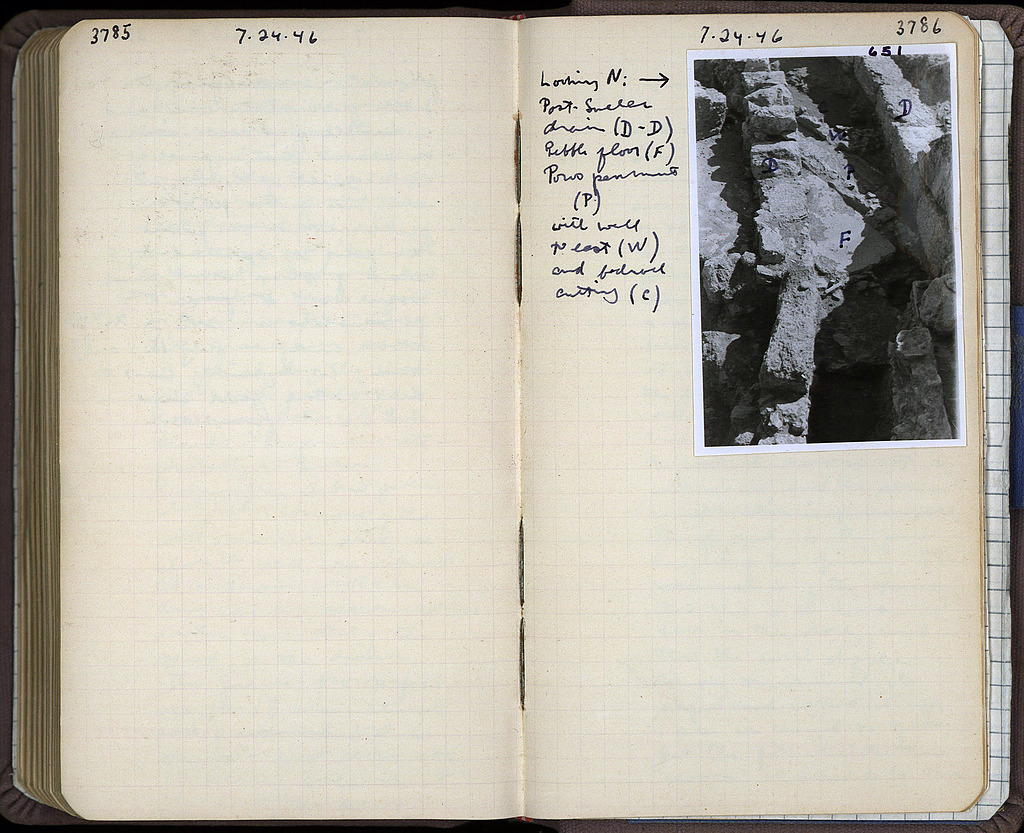 3785
7·24·46
7·24·46
3786
651
Looking N: →
Post-Sullan
drain (D-D)
Pebble floor (F)
Poros
(P)
with well
to east (W)
and bedrock
cutting (C)
D
W
D
P
F